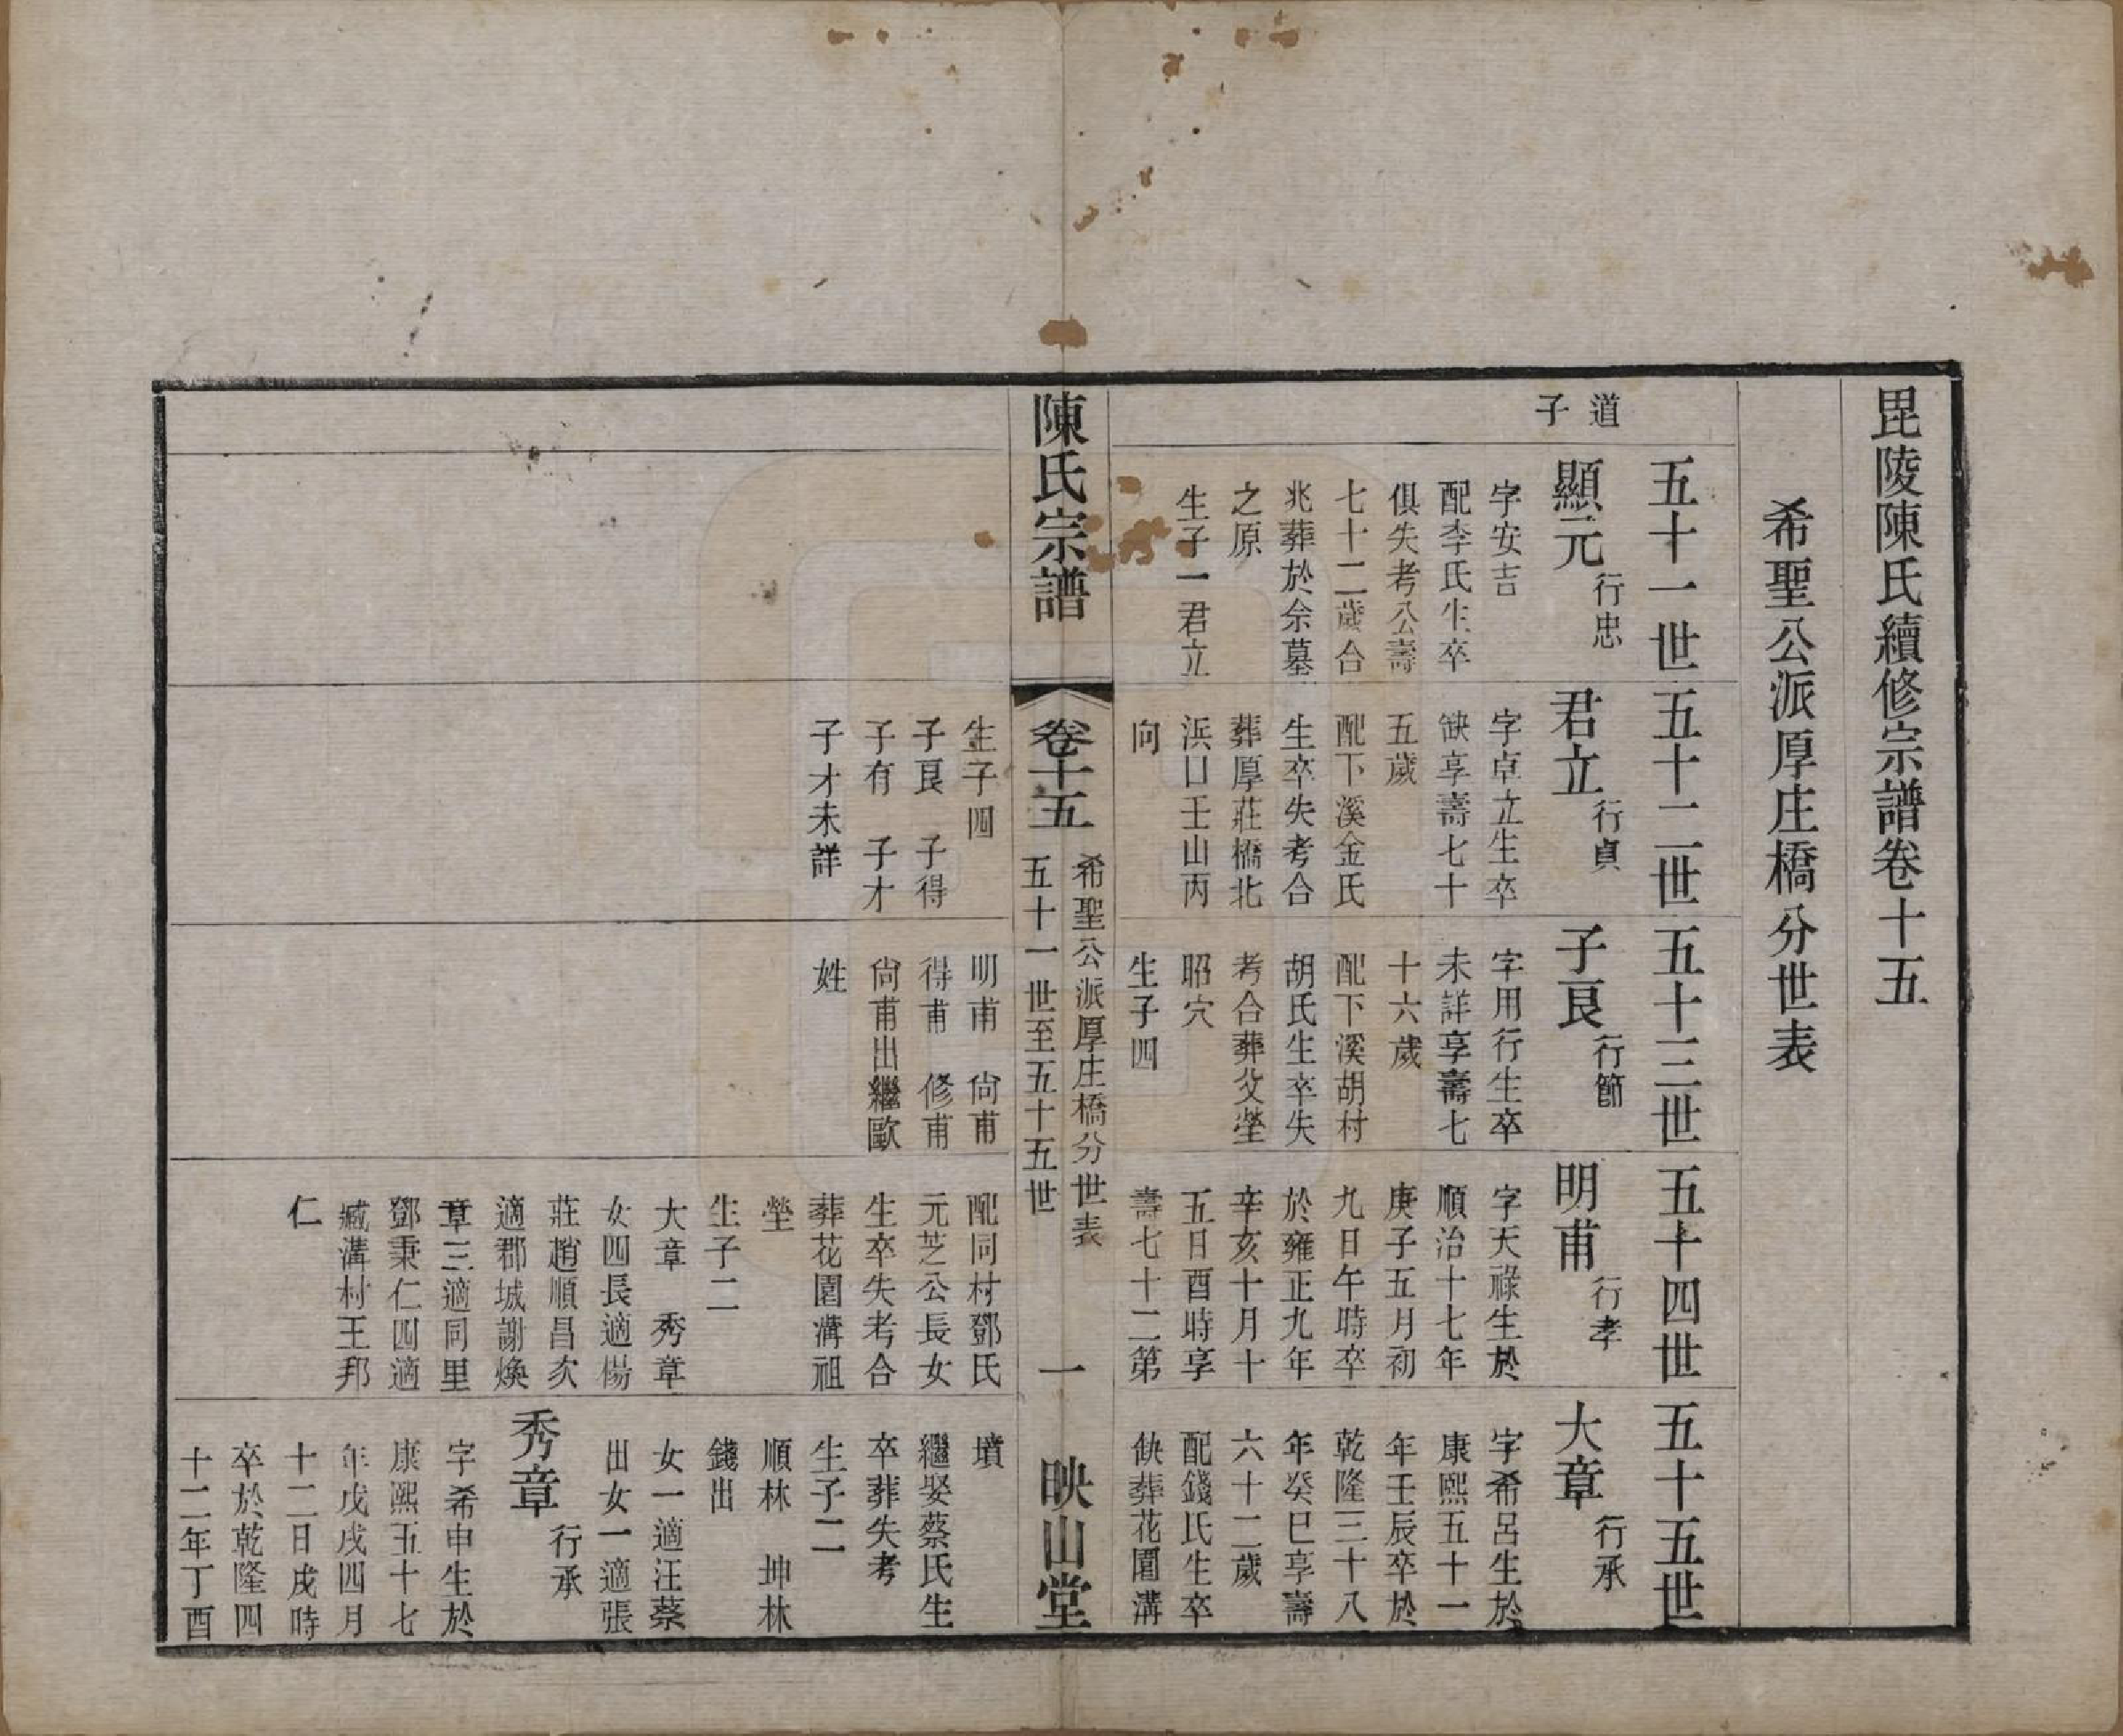 毘陵陳氏續修宗譜卷十五
希聖公派厚庄橋分世表
道
子
五十一世
顯元
行忠
字安吉
配李氏生卒
俱失考公壽
七十二歲合
兆葬於余墓
之原
生子一君立
五十二世
君立
行貞
字卓立生卒
缺享壽七十
五歲
配下溪金氏
生卒失考合
葬厚莊橋北
浜口壬山丙
向
生子四
子良 子得
子有 子才
子才未詳
五十三世
子良
行節
字用行生卒
未詳享壽七
十六歲
配下溪胡村
胡氏生卒失
考合葬父塋
昭穴
生子四
明甫 尙甫
得甫 修甫
尙甫出繼歐
姓
五十四世
明甫
行孝
字天祿生於
順治十七年
庚子五月初
九日午時卒
於雍正九年
辛亥十月十
五日酉時享
壽七十二第
配同村鄧氏
元芝公長女
生卒失考合
葬花園溝祖
塋
生子二
大章 秀章
女四長適楊
莊趙順昌次
適郡城謝煥
章三適同里
鄧秉仁四適
臧溝村王邦
仁
五十五世
大章
行承
字希呂生於
康熙五十一
年壬辰卒於
乾隆三十八
年癸巳享壽
六十二歲
配錢氏生卒
缺葬花園溝
墳
繼娶蔡氏生
卒葬失考
生子二
順林 坤林
錢出
女一適汪蔡
出女一適張
秀章
行承
字希申生於
康熙五十七
年戊戌四月
十二日戌時
卒於乾隆四
十二年丁酉
陳氏宗譜
卷十五
希聖公派厚庄橋分世表
五十一世至五十五世
一
映山堂